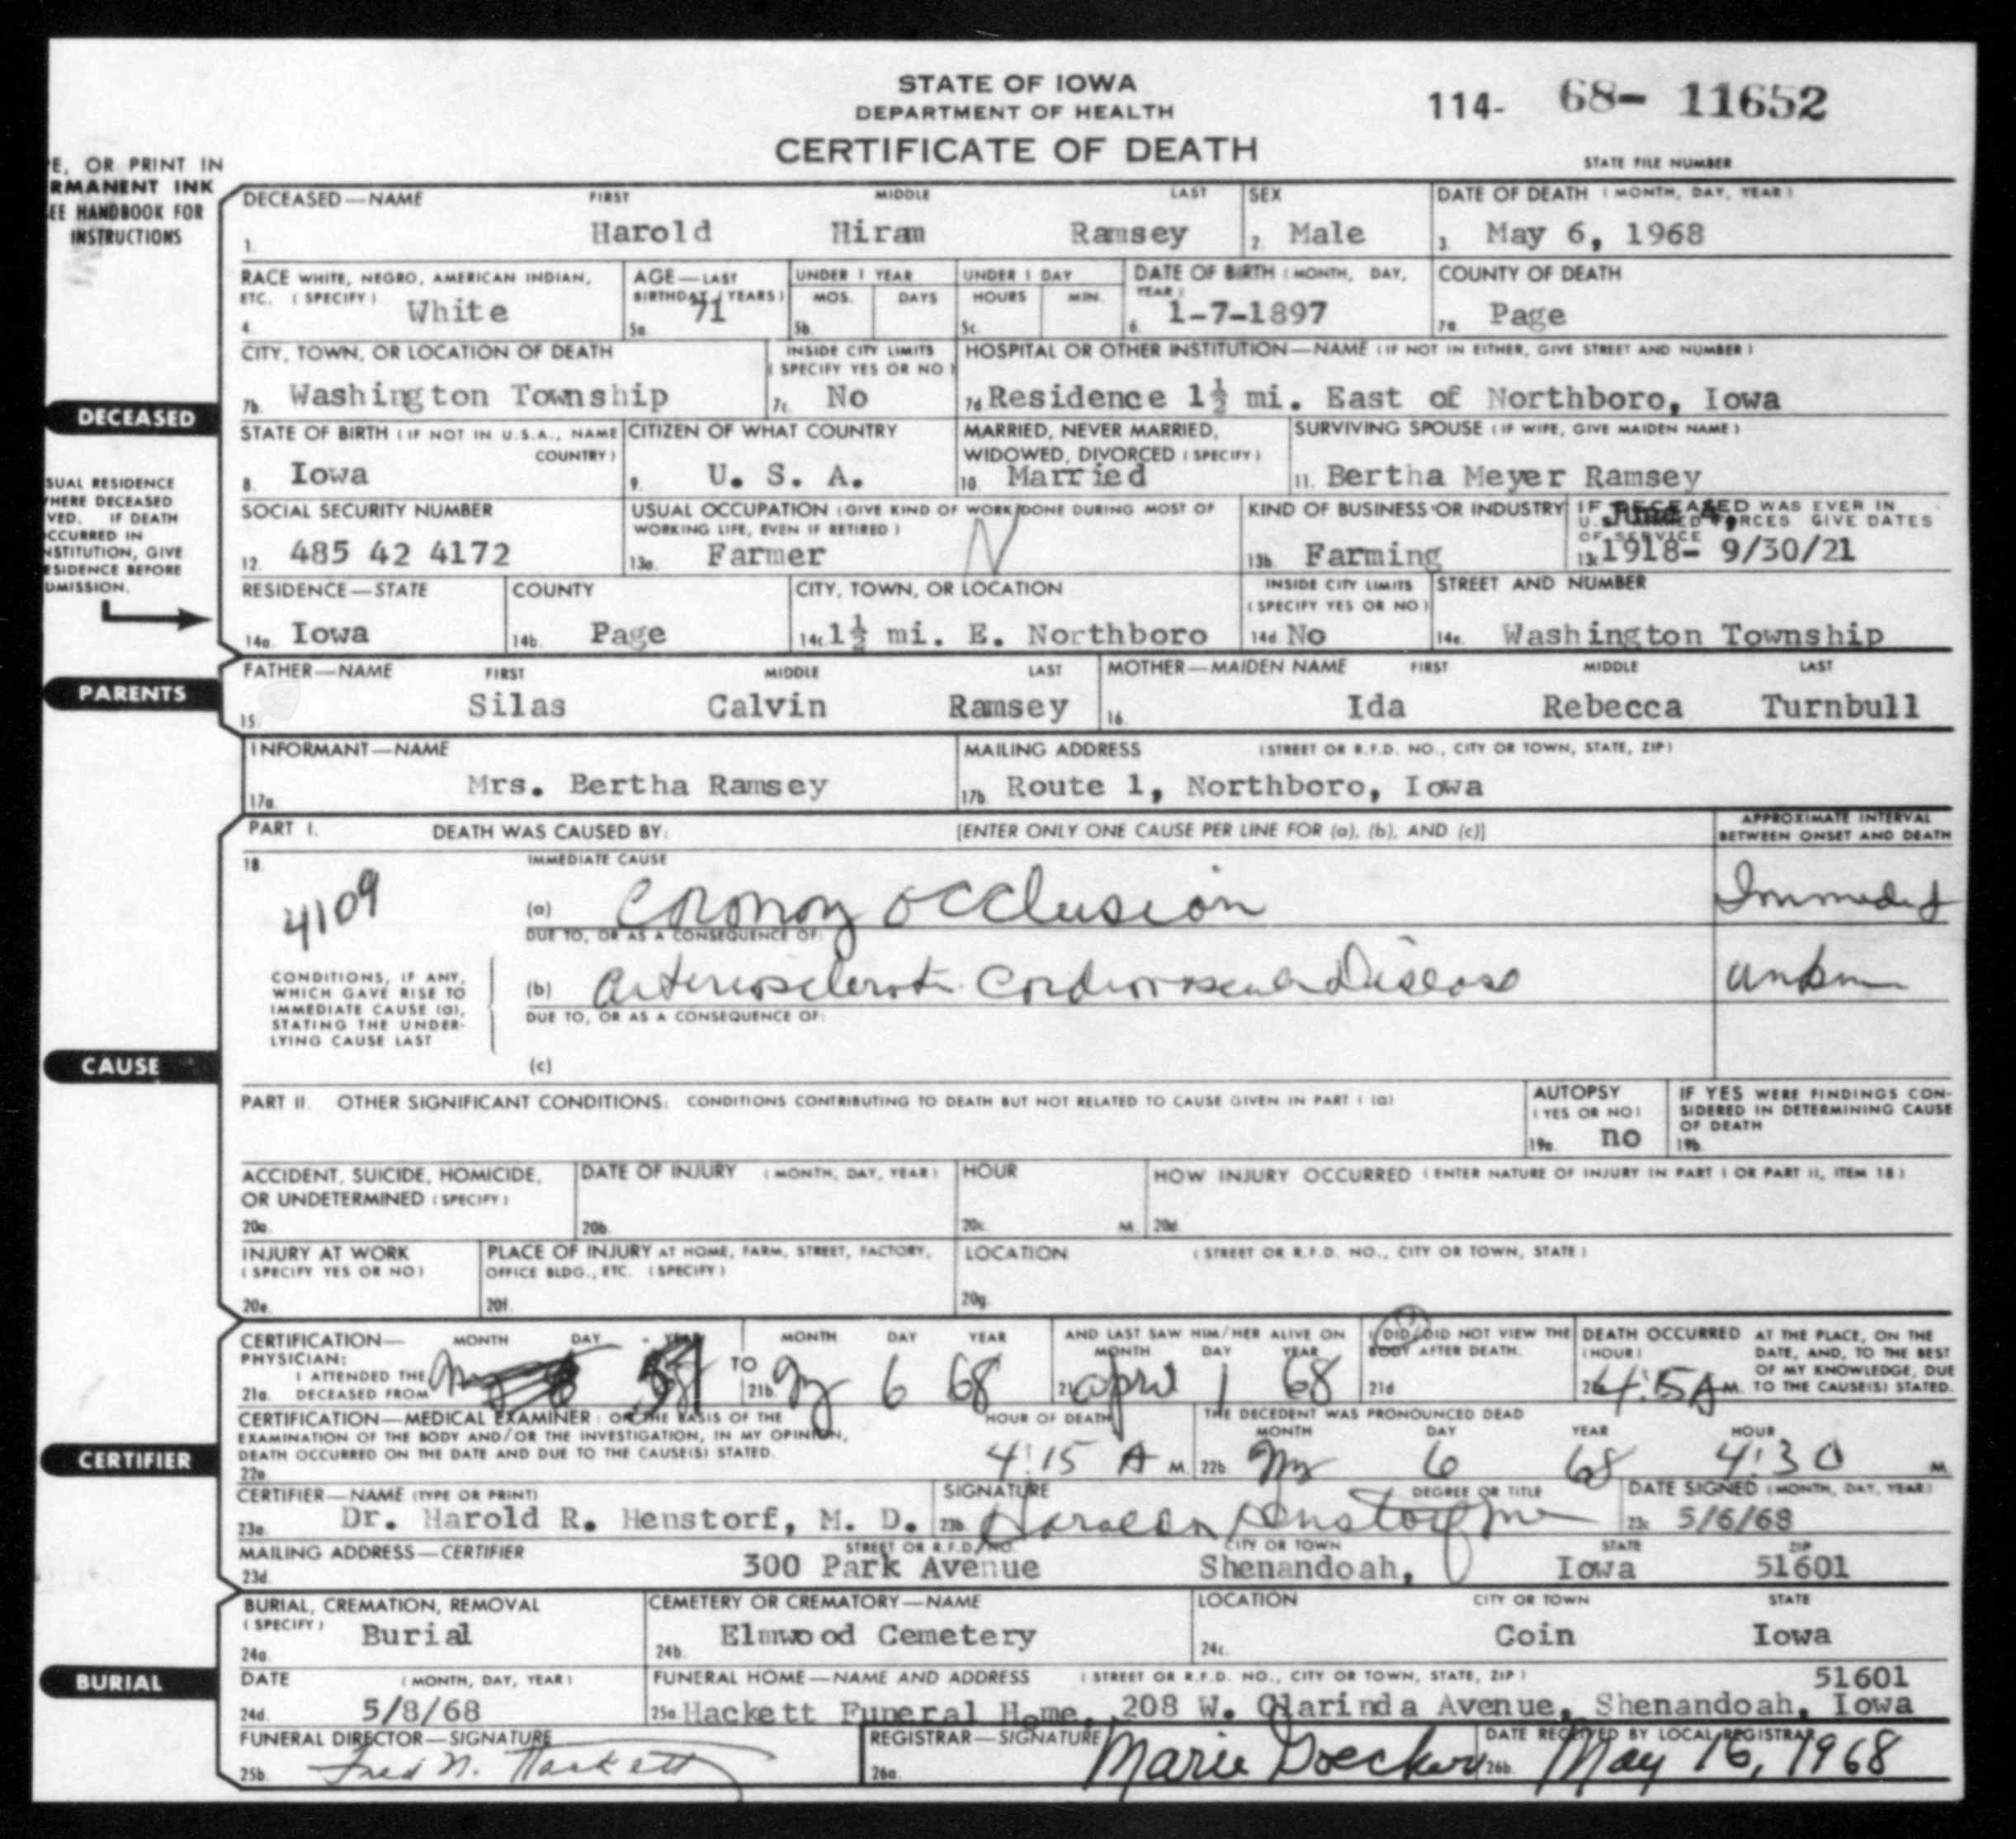 STATE OF IOWA
DEPARTMENT OF HEALTH
CERTIFICATE OF DEATH
114- 68- 11652
STATE FILE NUMBER
E, OR PRINT IN
RMANENT INK
EE HANDBOOK FOR
INSTRUCTIONS
DECEASED—NAME FIRST MIDDLE LAST
1. Harold Hiram Ramsey
SEX
2. Male
DATE OF DEATH (MONTH, DAY, YEAR)
3. May 6, 1968
RACE WHITE, NEGRO, AMERICAN INDIAN,
ETC. (SPECIFY)
4. White
AGE—LAST
BIRTHDAY (YEARS)
5a. 71
UNDER 1 YEAR
MOS. DAYS
5b.
UNDER 1 DAY
HOURS MIN.
5c.
DATE OF BIRTH (MONTH, DAY,
YEAR)
6. 1-7-1897
COUNTY OF DEATH
7a. Page
CITY, TOWN, OR LOCATION OF DEATH
7b. Washington Township
INSIDE CITY LIMITS
(SPECIFY YES OR NO)
7c. No
HOSPITAL OR OTHER INSTITUTION—NAME (IF NOT IN EITHER, GIVE STREET AND NUMBER)
7d. Residence 1½ mi. East of Northboro, Iowa
DECEASED
STATE OF BIRTH (IF NOT IN U.S.A., NAME
COUNTRY)
8. Iowa
CITIZEN OF WHAT COUNTRY
9. U. S. A.
MARRIED, NEVER MARRIED,
WIDOWED, DIVORCED (SPECIFY)
10. Married
SURVIVING SPOUSE (IF WIFE, GIVE MAIDEN NAME)
11. Bertha Meyer Ramsey
SUAL RESIDENCE
HERE DECEASED
VED. IF DEATH
CCURRED IN
NSTITUTION, GIVE
ESIDENCE BEFORE
DMISSION.
SOCIAL SECURITY NUMBER
12. 485 42 4172
USUAL OCCUPATION (GIVE KIND OF WORK DONE DURING MOST OF
WORKING LIFE, EVEN IF RETIRED)
13a. Farmer
KIND OF BUSINESS OR INDUSTRY
13b. Farming
IF DECEASED WAS EVER IN
U.S. ARMED FORCES GIVE DATES
OF SERVICE
June 4,
13c. 1918- 9/30/21
RESIDENCE—STATE
14a. Iowa
COUNTY
14b. Page
CITY, TOWN, OR LOCATION
14c. 1½ mi. E. Northboro
INSIDE CITY LIMITS
(SPECIFY YES OR NO)
14d. No
STREET AND NUMBER
14e. Washington Township
PARENTS
FATHER—NAME FIRST MIDDLE LAST
15. Silas Calvin Ramsey
MOTHER—MAIDEN NAME FIRST MIDDLE LAST
16. Ida Rebecca Turnbull
INFORMANT—NAME
17a. Mrs. Bertha Ramsey
MAILING ADDRESS (STREET OR R.F.D. NO., CITY OR TOWN, STATE, ZIP)
17b. Route 1, Northboro, Iowa
PART I. DEATH WAS CAUSED BY: [ENTER ONLY ONE CAUSE PER LINE FOR (a), (b), AND (c)]
APPROXIMATE INTERVAL
BETWEEN ONSET AND DEATH
18. IMMEDIATE CAUSE
4109
(a) Coronary occlusion
DUE TO, OR AS A CONSEQUENCE OF:
CONDITIONS, IF ANY,
WHICH GAVE RISE TO
IMMEDIATE CAUSE (a),
STATING THE UNDER-
LYING CAUSE LAST
(b) Arteriosclerotic Cardiovascular Disease
DUE TO, OR AS A CONSEQUENCE OF:
(c)
CAUSE
PART II. OTHER SIGNIFICANT CONDITIONS: CONDITIONS CONTRIBUTING TO DEATH BUT NOT RELATED TO CAUSE GIVEN IN PART I (a)
AUTOPSY
(YES OR NO)
19a. no
IF YES WERE FINDINGS CON-
SIDERED IN DETERMINING CAUSE
OF DEATH
19b.
ACCIDENT, SUICIDE, HOMICIDE,
OR UNDETERMINED (SPECIFY)
20a.
DATE OF INJURY (MONTH, DAY, YEAR)
20b.
HOUR
20c. M.
HOW INJURY OCCURRED (ENTER NATURE OF INJURY IN PART I OR PART II, ITEM 18)
20d.
INJURY AT WORK
(SPECIFY YES OR NO)
20e.
PLACE OF INJURY AT HOME, FARM, STREET, FACTORY,
OFFICE BLDG., ETC. (SPECIFY)
20f.
LOCATION (STREET OR R.F.D. NO., CITY OR TOWN, STATE)
20g.
CERTIFICATION— MONTH DAY YEAR
PHYSICIAN:
I ATTENDED THE
21a. DECEASED FROM
TO MONTH DAY YEAR
21b. 6 68
AND LAST SAW HIM/HER ALIVE ON
MONTH DAY YEAR
April 1 68
I DID/DID NOT VIEW THE
BODY AFTER DEATH.
21d.
DEATH OCCURRED
(HOUR)
M.
AT THE PLACE, ON THE
DATE, AND, TO THE BEST
OF MY KNOWLEDGE, DUE
TO THE CAUSE(S) STATED.
CERTIFIER
CERTIFICATION—MEDICAL EXAMINER: ON THE BASIS OF THE
EXAMINATION OF THE BODY AND/OR THE INVESTIGATION, IN MY OPINION,
DEATH OCCURRED ON THE DATE AND DUE TO THE CAUSE(S) STATED.
22a.
HOUR OF DEATH
4:15 A M.
THE DECEDENT WAS PRONOUNCED DEAD
MONTH DAY YEAR HOUR
22b. 6 68 4:30 M.
CERTIFIER—NAME (TYPE OR PRINT)
23a. Dr. Harold R. Henstorf, M. D.
SIGNATURE DEGREE OR TITLE
23b.
DATE SIGNED (MONTH, DAY, YEAR)
23c. 5/6/68
MAILING ADDRESS—CERTIFIER STREET OR R.F.D. NO. CITY OR TOWN STATE ZIP
23d. 300 Park Avenue Shenandoah, Iowa 51601
BURIAL
BURIAL, CREMATION, REMOVAL
(SPECIFY)
24a. Burial
CEMETERY OR CREMATORY—NAME
24b. Elmwood Cemetery
LOCATION CITY OR TOWN STATE
24c. Coin Iowa
DATE (MONTH, DAY, YEAR)
24d. 5/8/68
FUNERAL HOME—NAME AND ADDRESS (STREET OR R.F.D. NO., CITY OR TOWN, STATE, ZIP)
51601
25a. Hackett Funeral Home, 208 W. Clarinda Avenue, Shenandoah, Iowa
FUNERAL DIRECTOR—SIGNATURE
25b. Fred N. Hackett
REGISTRAR—SIGNATURE
26a. Marie Goecker
DATE RECEIVED BY LOCAL REGISTRAR
26b. May 16, 1968